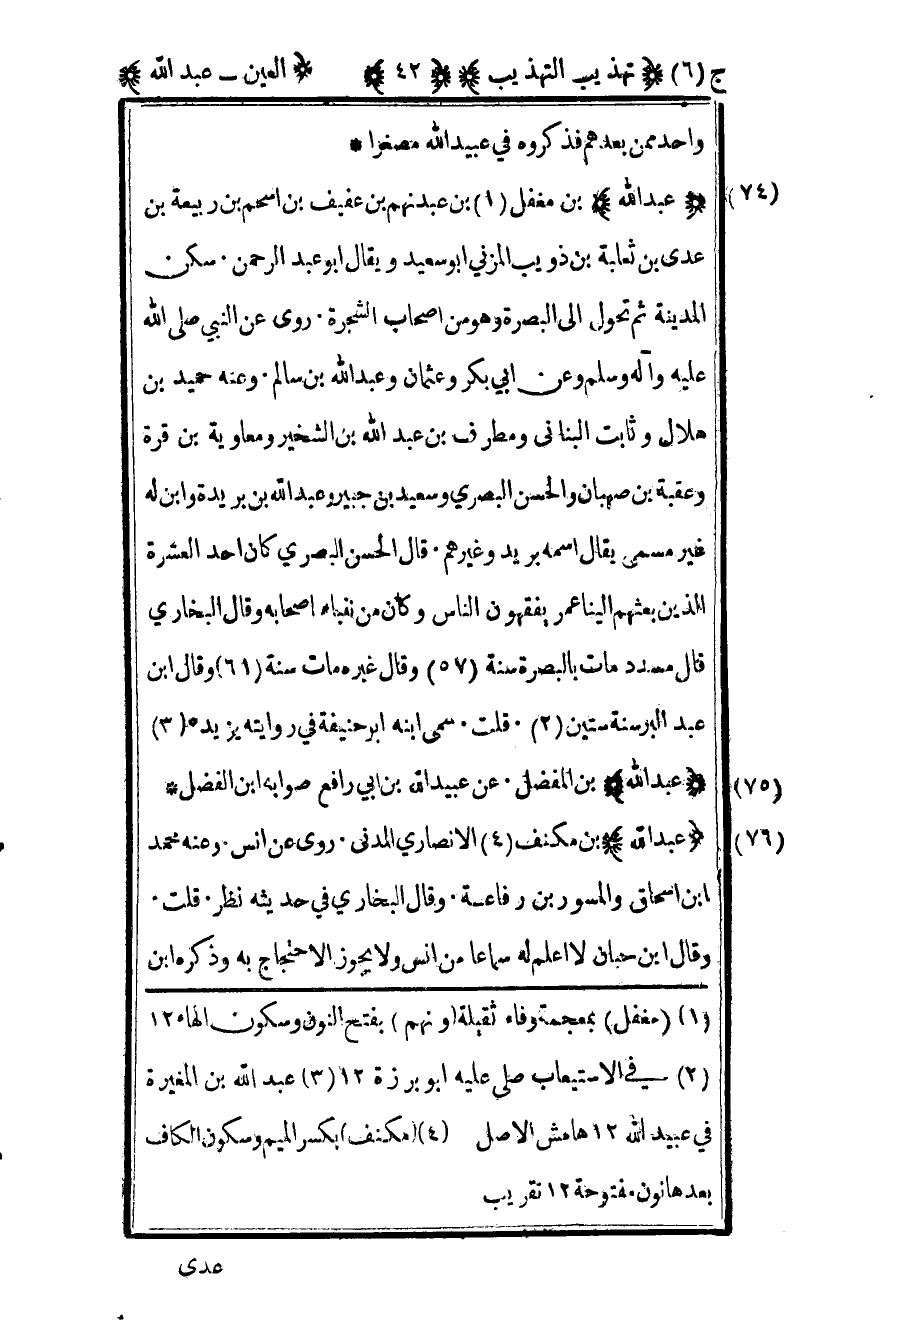 ج (٦) ﴿ تهذيب التهذيب ﴾ ﴿ ٤٢ ﴾ ﴿ العين ــ عبد الله ﴾
واحد ممن بعدهم فذكروه في عبيدالله مصغرا *
(٧٤) ﴿ عبدالله ﴾ بن مغفل (١) بن عبدنهم بن عفيف بن اسحم بن ربيعة بن
عدى بن ثعلبة بن ذويب المزني ابوسعيد ويقال ابوعبد الرحمن ٠ سكن
المدينة ثم تحول الى البصرة وهو من اصحاب الشجرة ٠ روى عن النبي صلى الله
عليه وآله وسلم وعن ابي بكر وعثمان وعبدالله بن سالم ٠ وعنه حميد بن
هلال وثابت البنانى ومطرف بن عبد الله بن الشخير ومعاوية بن قرة
وعقبة بن صهبان والحسن البصري وسعيد بن جبير وعبدالله بن بريدة وابن له
غير مسمى يقال اسمه بريد وغيرهم ٠ قال الحسن البصري كان احد العشرة
الذين بعثهم الينا عمر يفقهون الناس وكان من نقباء اصحابه وقال البخاري
قال مسدد مات بالبصرة سنة (٥٧) وقال غيره مات سنة (٦١) وقال ابن
عبد البر سنة ستين (٢) ٠ قلت ٠ سمى ابنه ابوحنيفة في روايته يزيد * (٣)
(٧٥) ﴿ عبدالله ﴾ بن المفضل ٠ عن عبيدالله بن ابي رافع صوابه ابن الفضل *
(٧٦) ﴿ عبدالله ﴾ بن مكنف (٤) الانصاري المدنى ٠ روى عن انس ٠ وعنه محمد
ابن اسحاق والمسور بن رفاعة ٠ وقال البخاري في حديثه نظر ٠ قلت ٠
وقال ابن حبان لا اعلم له سماعا من انس ولا يجوز الاحتجاج به وذكره ابن
(١) (مغفل) بمعجمة وفاء ثقيلة (و نهم) بفتح النون وسكون الهاء ١٢
(٢) في الاستيعاب صلى عليه ابو برزة ١٢ (٣) عبد الله بن المغيرة
في عبيد الله ١٢ هامش الاصل (٤) (مكنف) بكسر الميم وسكون الكاف
بعدها نون مفتوحة ١٢ تقريب
عدى